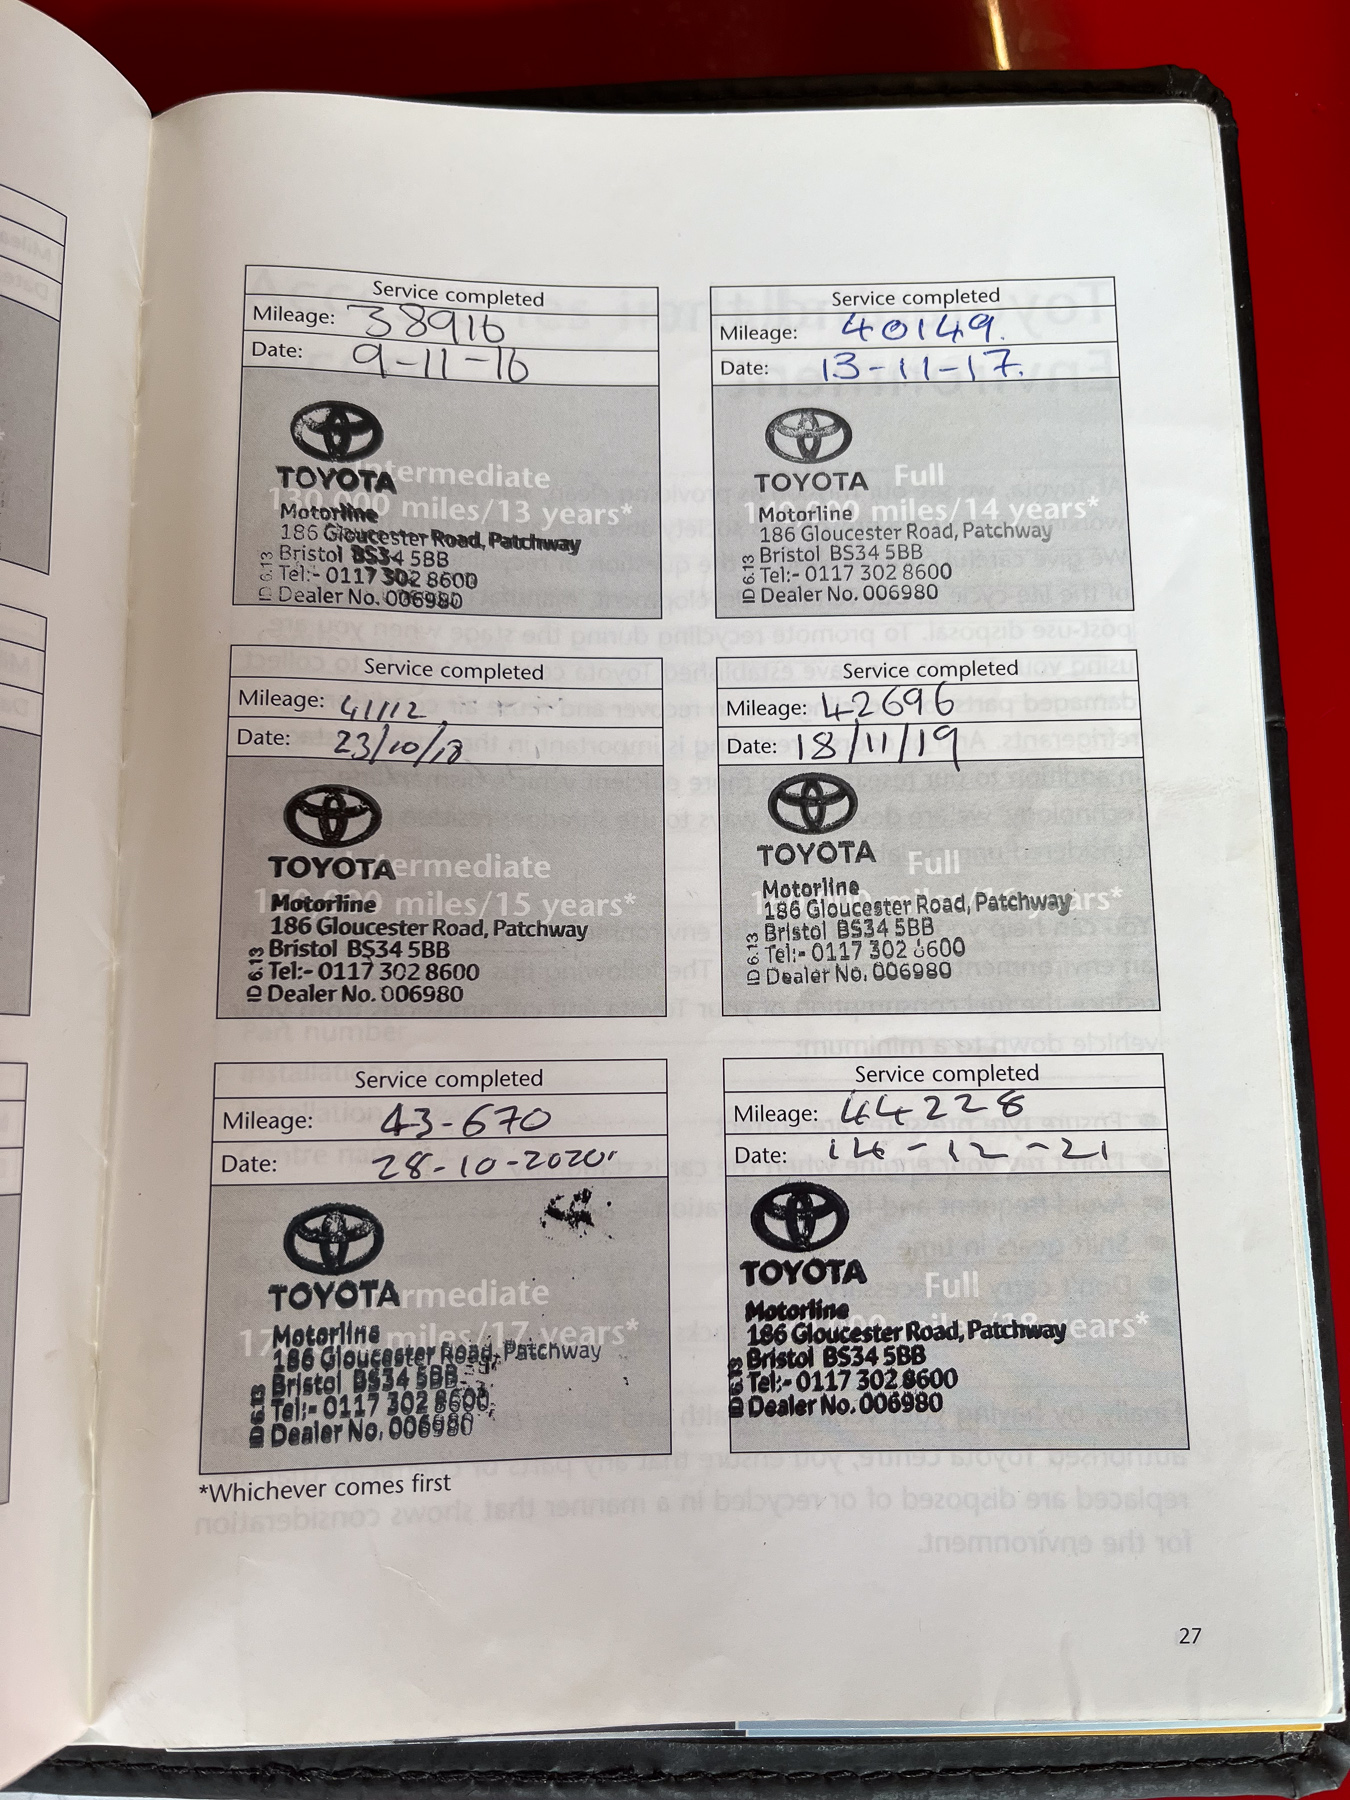 Service completed
Mileage: 38916
Date: 9-11-16
Intermediate
130,000 miles/13 years*
TOYOTA
Motorline
186 Gloucester Road, Patchway
Bristol BS34 5BB
Tel:- 0117 302 8600
Dealer No. 006980
ID 6.13
Service completed
Mileage: 40149.
Date: 13-11-17.
Full
miles/14 years*
TOYOTA
Motorline
186 Gloucester Road, Patchway
Bristol BS34 5BB
Tel:- 0117 302 8600
Dealer No. 006980
ID 6.13
Service completed
Mileage: 41112
Date: 23/10/18
Intermediate
miles/15 years*
TOYOTA
Motorline
186 Gloucester Road, Patchway
Bristol BS34 5BB
Tel:- 0117 302 8600
Dealer No. 006980
ID 6.13
Service completed
Mileage: 42696
Date: 18/11/19
Full
miles/16 years*
TOYOTA
Motorline
186 Gloucester Road, Patchway
Bristol BS34 5BB
Tel:- 0117 302 8600
Dealer No. 006980
ID 6.13
Service completed
Mileage: 43-670
Date: 28-10-2020
Intermediate
miles/17 years*
TOYOTA
Motorline
186 Gloucester Road, Patchway
Bristol BS34 5BB
Tel:- 0117 302 8600
Dealer No. 006980
Service completed
Mileage: 44228
Date: 14-12-21
Full
miles/18 years*
TOYOTA
Motorline
186 Gloucester Road, Patchway
Bristol BS34 5BB
Tel:- 0117 302 8600
Dealer No. 006980
*Whichever comes first
27